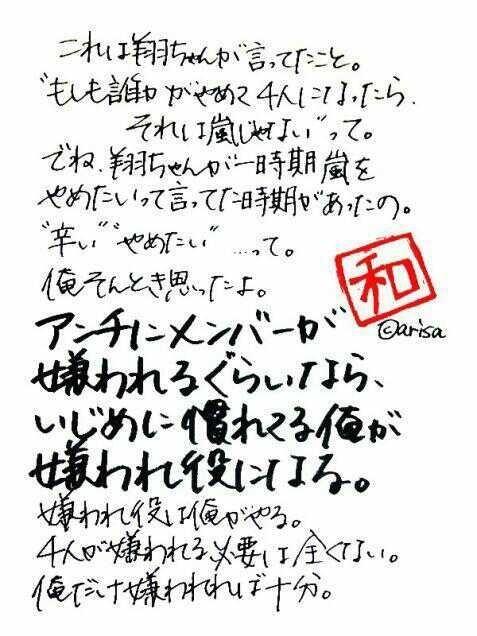 これは翔ちゃんが言ってたこと。
"もしも誰かがやめて4人になったら、
それは嵐じゃない"って。
でね、翔ちゃんが一時期嵐を
やめたいって言ってた時期があったの。
"辛い""やめたい"…って。
俺そんとき思ったよ。
和
©arisa
アンチにメンバーが
嫌われるぐらいなら、
いじめに慣れてる俺が
嫌われ役になる。
嫌われ役は俺がやる。
4人が嫌われる必要は全くない。
俺だけ嫌われれば十分。